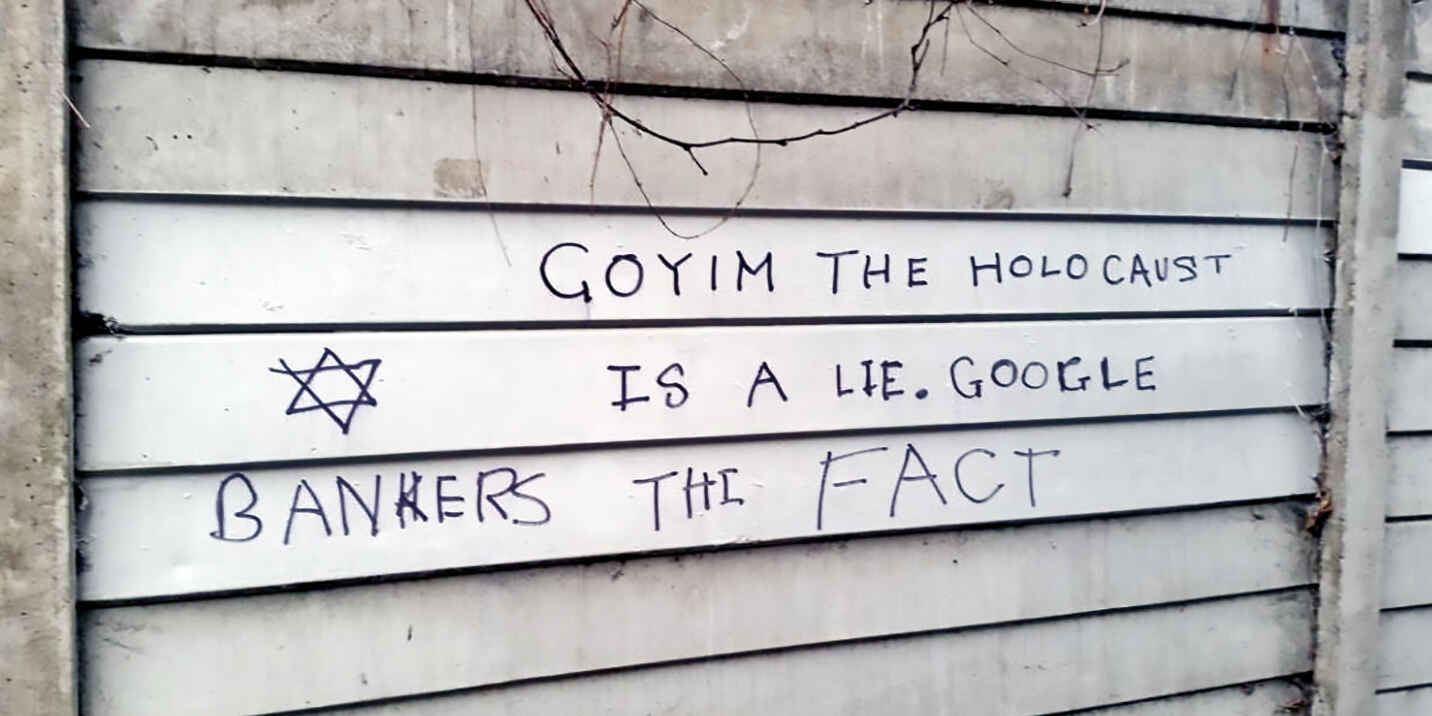 GOYIM THE HOLOCAUST
IS A LIE. GOOGLE
BANKERS THE FACT